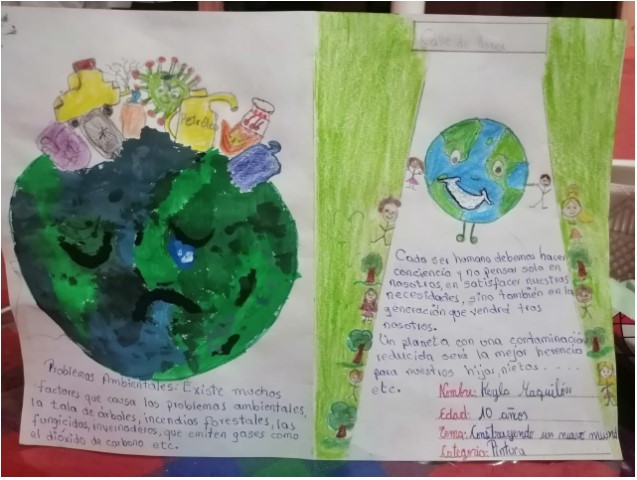 Petróleo
Problemas Ambientales: Existe muchos
factores que causa los problemas ambientales,
la tala de árboles, incendios forestales, las
fungicidas, invernaderos, que emiten gases como
el dióxido de carbono etc.
Cada ser humano debemos hacer
conciencia y no pensar solo en
nosotros, en satisfacer nuestras
necesidades, sino también en la
generación que vendrá tras
nosotros.
Un planeta con una contaminación
reducida será la mejor herencia
para nuestros hijos, nietos.....
etc.
Nombre: Keyla Maquilón
Edad: 10 años
Tema: Construyendo un nuevo mundo
Categoría: Pintura